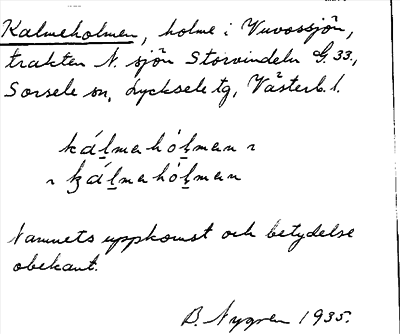 Kalmeholmen, holme i Vuvossjön,
trakten N. sjön Storvindeln G. 33.,
Sorsele sn, Lycksele tg, Västerb. l.
ká̱lmahó̱lman ~
~ ką́lmahó̱lman
Namnets uppkomst och betydelse
obekant.
B. Nygren 1935.